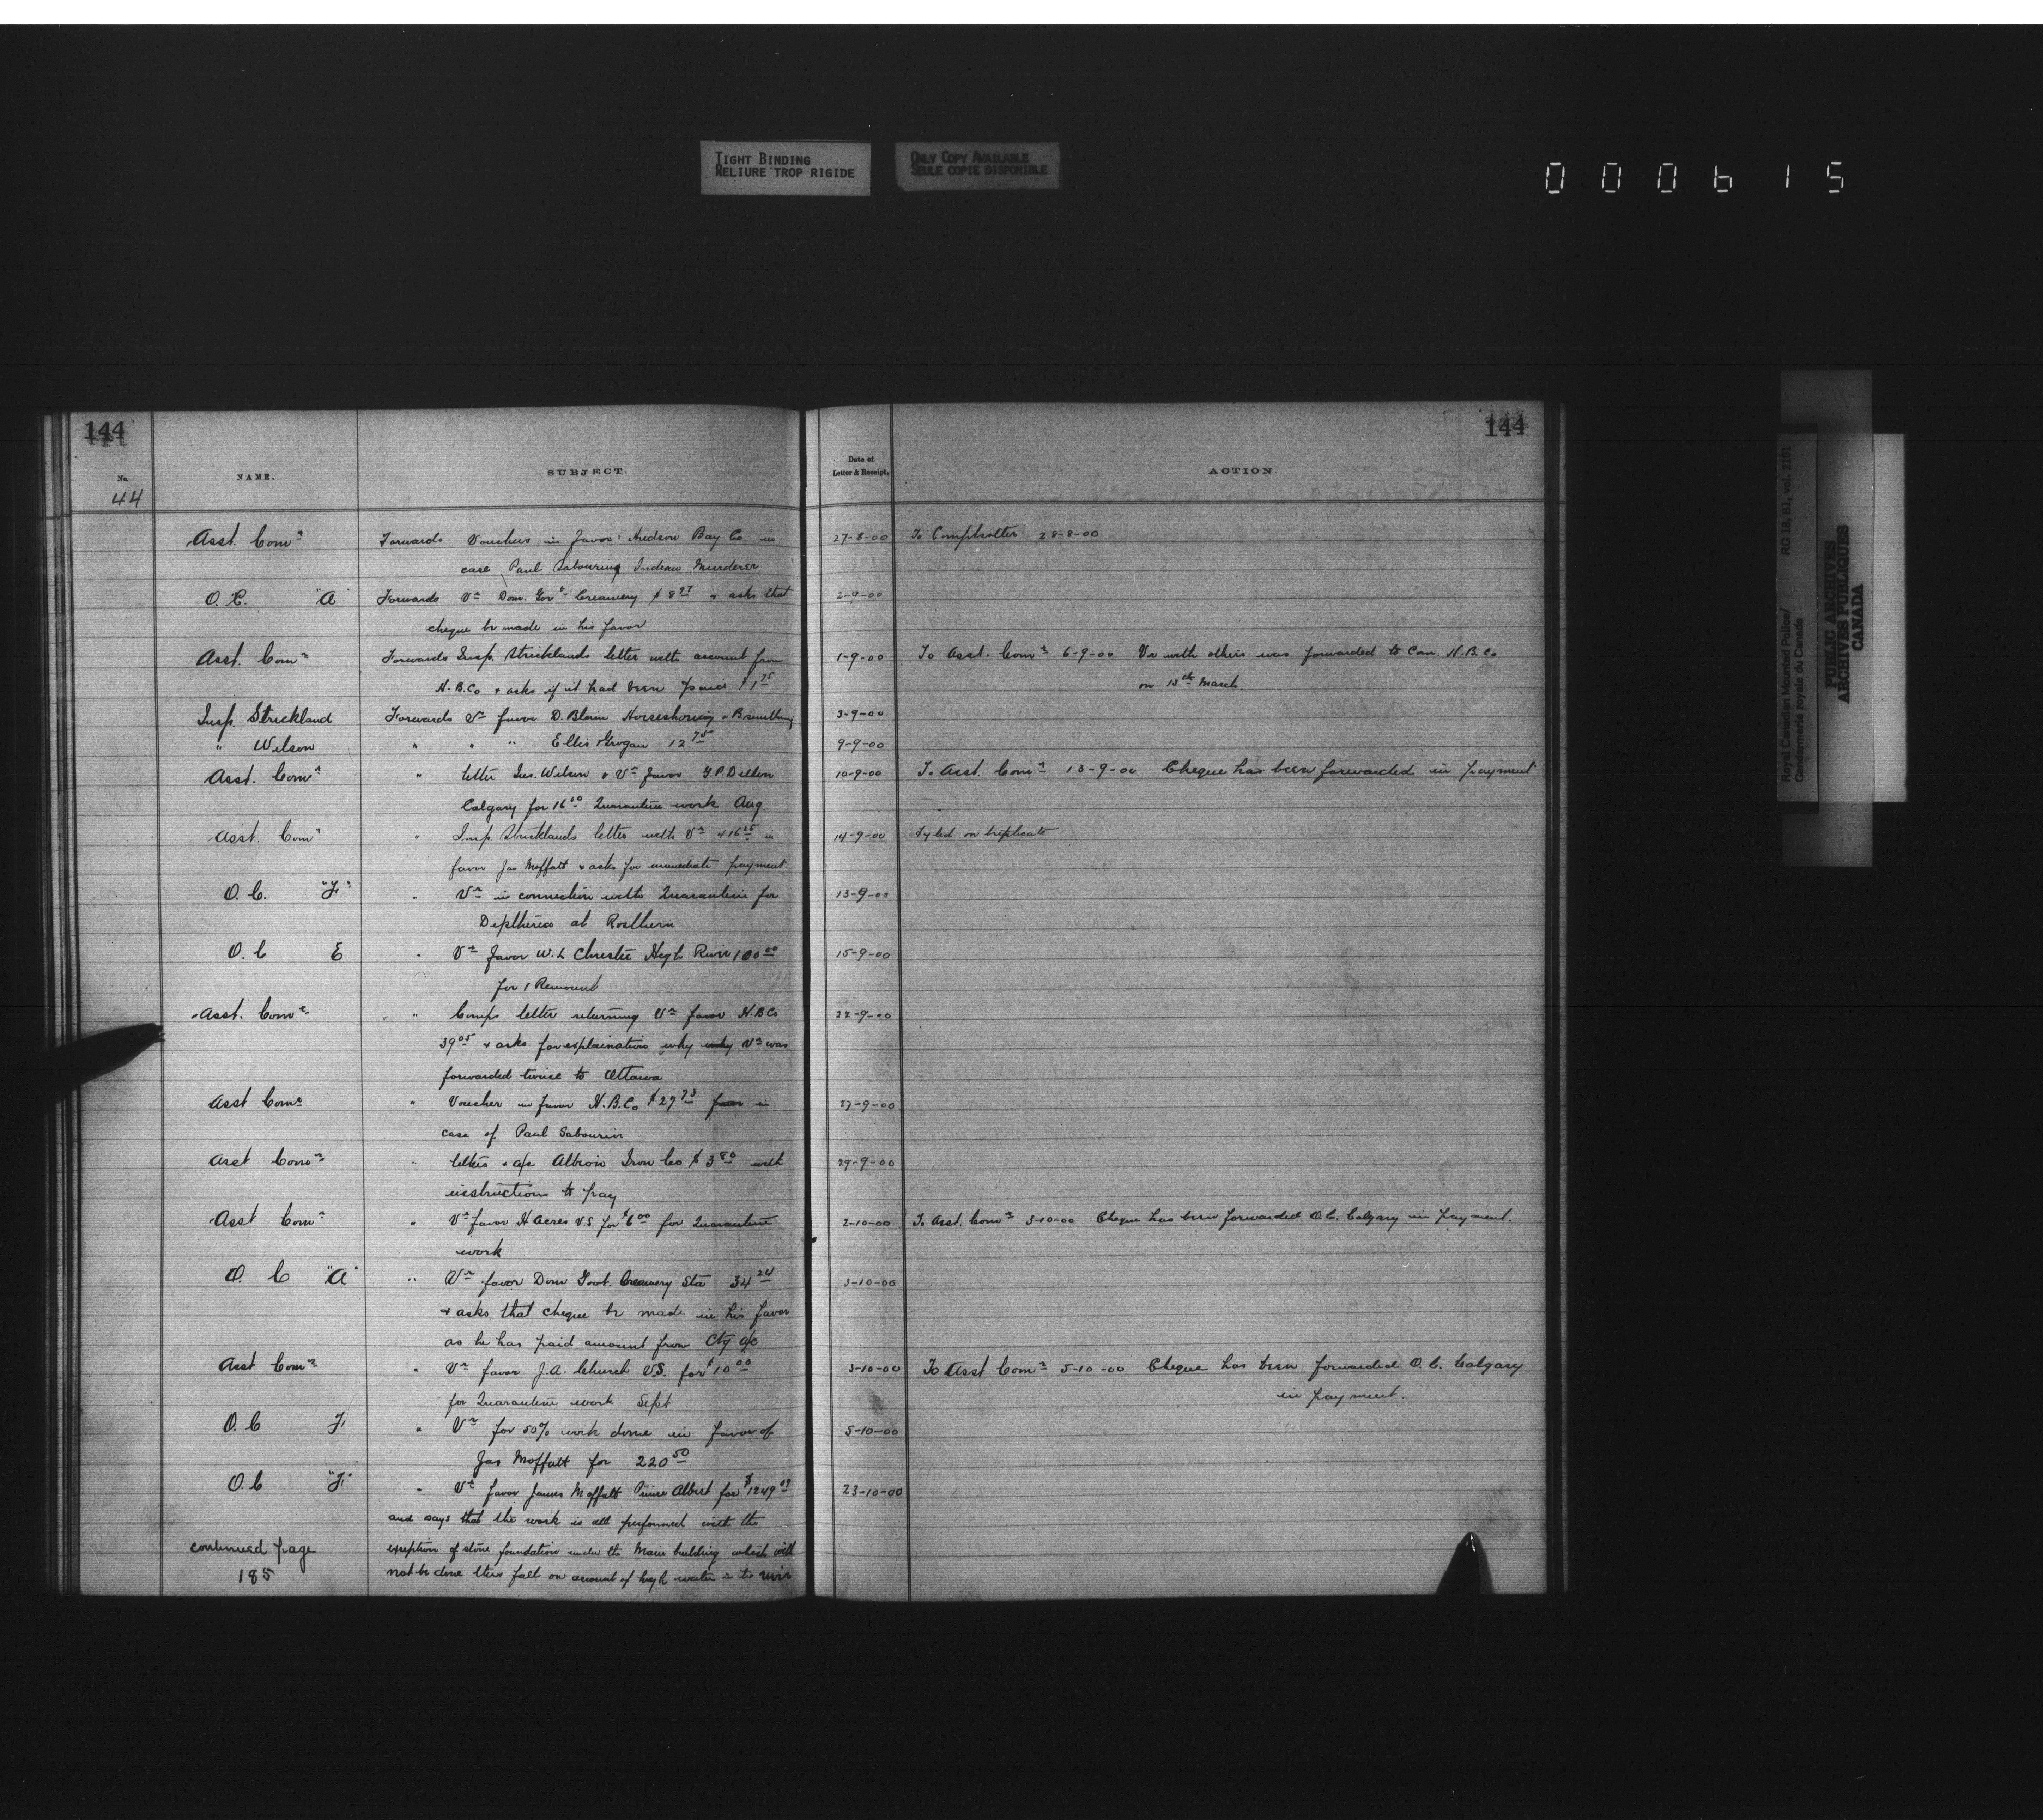 TIGHT BINDING
RELIURE TROP RIGIDE
ONLY COPY AVAILABLE
SEULE COPIE DISPONIBLE
000615
144
144
No.
NAME.
SUBJECT.
Date of
Letter & Receipt.
ACTION
44
Asst. Comr Forwards Vouchers in favor Hudson Bay Co in 27-8-00 To Comptroller 28-8-00
case Paul Sabourin Indian Murderer
O.C. "A" Forwards Vr Dom. Govt Creamery $8 & asks that 2-9-00
cheque be made in his favor
Asst. Comr Forwards Insp. Stricklands letter with account from 1-9-00 To Asst. Comr 6-9-00 Vr with others was forwarded to Com. H.B.Co
H.B.Co & asks if it had been paid $1 75 on 13th March.
Insp. Strickland Forwards Vr favor D. Blain Horseshoeing & Bsmithing 3-9-00
" Wilson " " " Ellis & Grogan 12 75 9-9-00
Asst. Comr " letter Ins. Wilson & Vr favor G.P. Dillon 10-9-00 To Asst. Comr 13-9-00 Cheque has been forwarded in payment
Calgary for 16 00 Quarantine work Aug.
Asst. Comr " Insp Stricklands letter with Vr 416 25 in 14-9-00 Fyled on triplicate
favor Jas Moffatt & asks for immediate payment
O.C. "F" " Vr in connection with Quarantine for 13-9-00
Diptheria at Rosthern
O.C E " Vr favor W.L Christie High River 100 00 15-9-00
for 1 Remount
Asst. Comr " Comps letter returning Vr favor H.B Co 22-9-00
39 05 & asks for explaination why why Vr was
forwarded twice to Ottawa
Asst Comr " Voucher in favor H.B.Co $27 73 in 27-9-00
case of Paul Sabourin
Asst Comr " letters & a/c Albion Iron Co $3 80 with 29-9-00
instructions to pay
Asst Comr " Vr favor H Acres V.S for $6 00 for Quarantine 2-10-00 To Asst. Comr 3-10-00 Cheque has been forwarded O.C. Calgary in payment.
work
O. C "A" " Vr favor Dom Govt. Creamery Sta 34 24 3-10-00
& asks that cheque be made in his favor
as he has paid amount from Ctg a/c
Asst Comr " Vr favor J.A. Church V.S. for $10 00 3-10-00 To Asst Comr 5-10-00 Cheque has been forwarded O.C. Calgary
for Quarantine work Sept in payment.
O.C F " Vr for 50% work done in favor of 5-10-00
Jas Moffatt for 220 50
O.C "F" " Vr favor James Moffatt Prince Albert for $1249 23-10-00
and says that the work is all performed with the
exception of stone foundation under the Main building which will
not be done this fall on account of high water in the river
continued page
185
Royal Canadian Mounted Police/
Gendarmerie royale du Canada
RG 18, B1, vol. 2181
PUBLIC ARCHIVES
ARCHIVES PUBLIQUES
CANADA